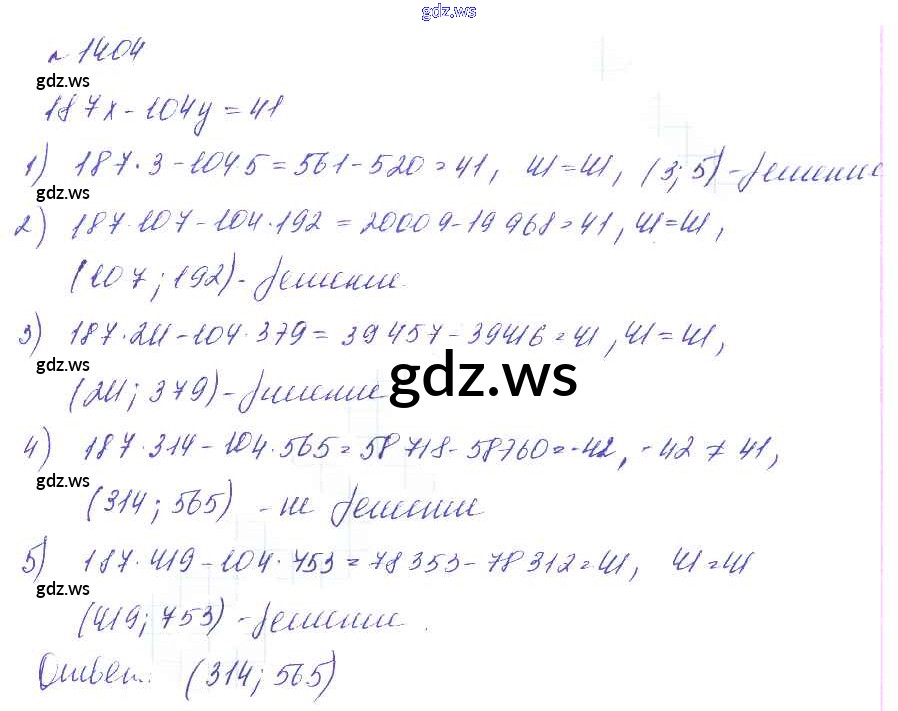 gdz.ws
№ 1404
gdz.ws
187x - 104y = 41
1) 187·3 - 104 5 = 561 - 520 = 41, 41 = 41, (3; 5) - решение
gdz.ws
2) 187·107 - 104·192 = 20009 - 19968 = 41, 41 = 41,
(107; 192) - решение
3) 187·211 - 104·379 = 39457 - 39416 = 41, 41 = 41,
gdz.ws
gdz.ws
(211; 379) - решение
4) 187·314 - 104·565 = 58718 - 58760 = -42, -42 ≠ 41,
gdz.ws
(314; 565) - не решение
5) 187·419 - 104·753 = 78353 - 78312 = 41, 41 = 41
gdz.ws
(419; 753) - решение.
Ответ: (314; 565)